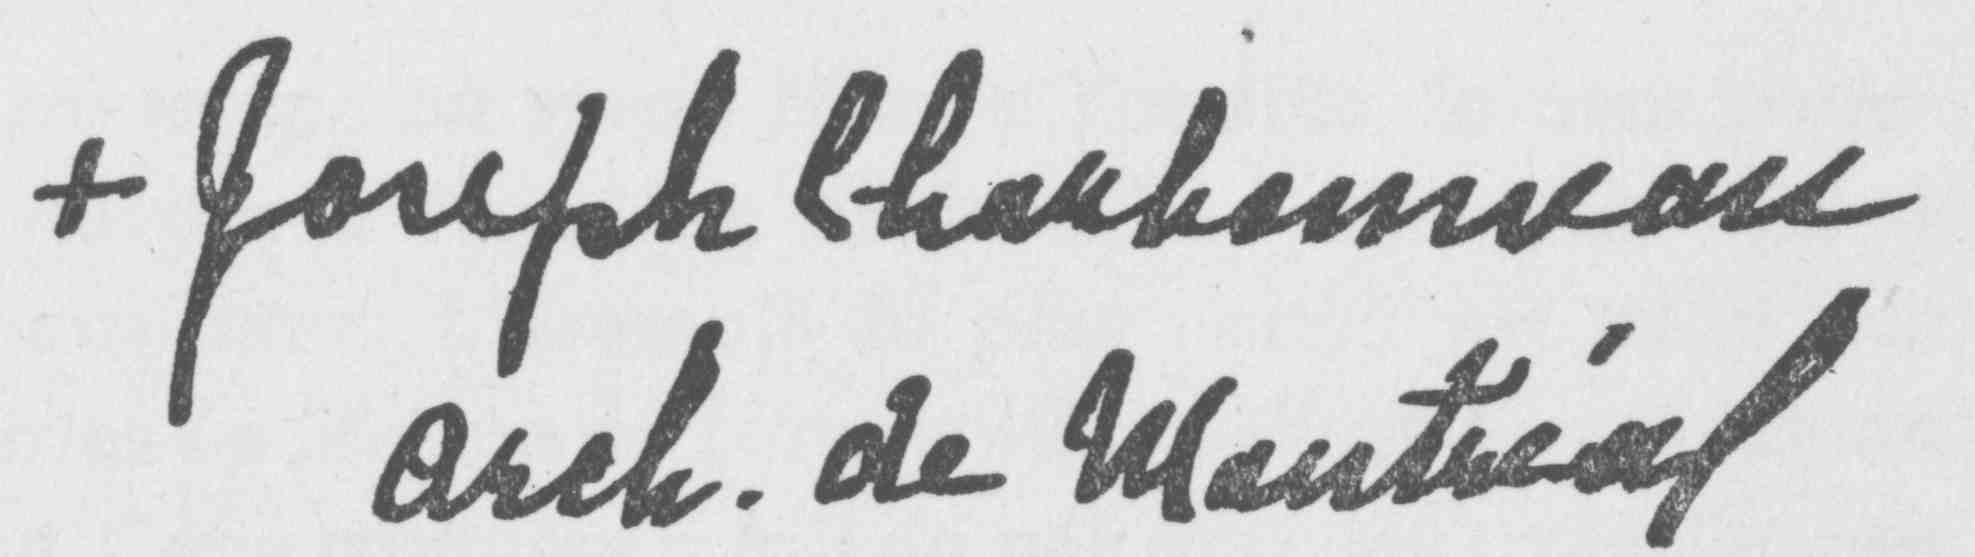 + Joseph Charbonneau
arch. de Montréal